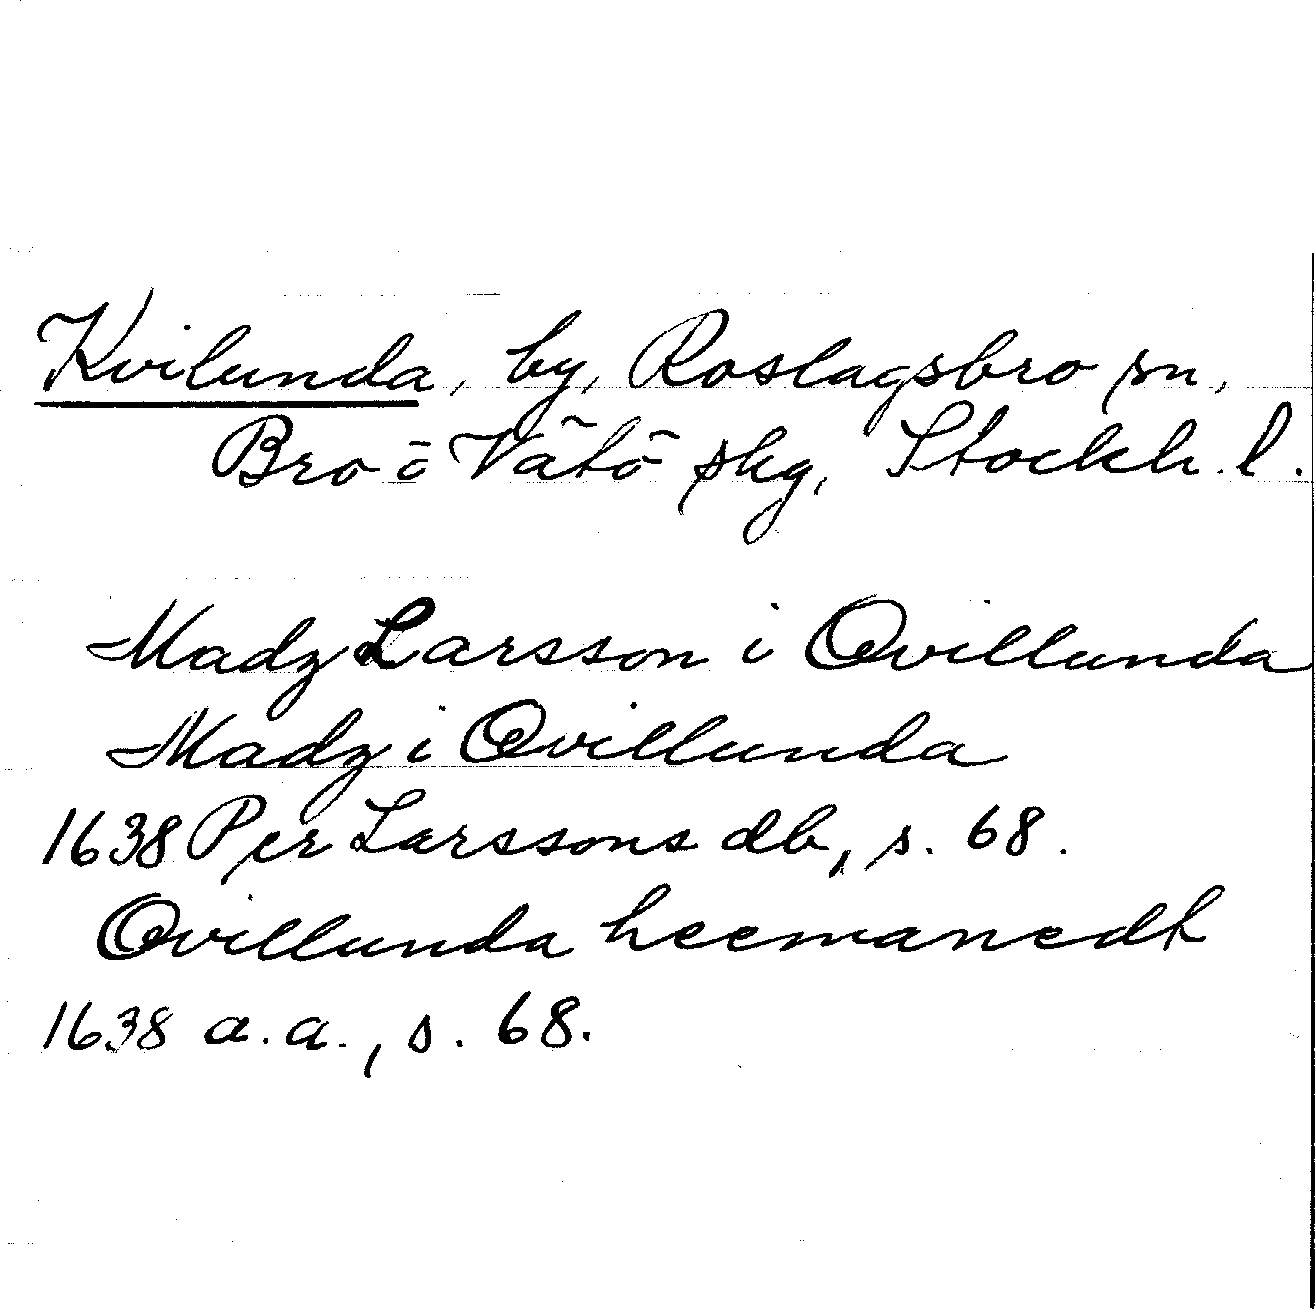 Kvilunda, by, Roslagsbro sn,
Bro o Vätö skg, Stockh. l.
Madz Larsson i Qvillunda
Madz i Qvillunda
1638 Per Larssons db, s. 68.
Qvillunda heemanedt
1638 a.a., s. 68.